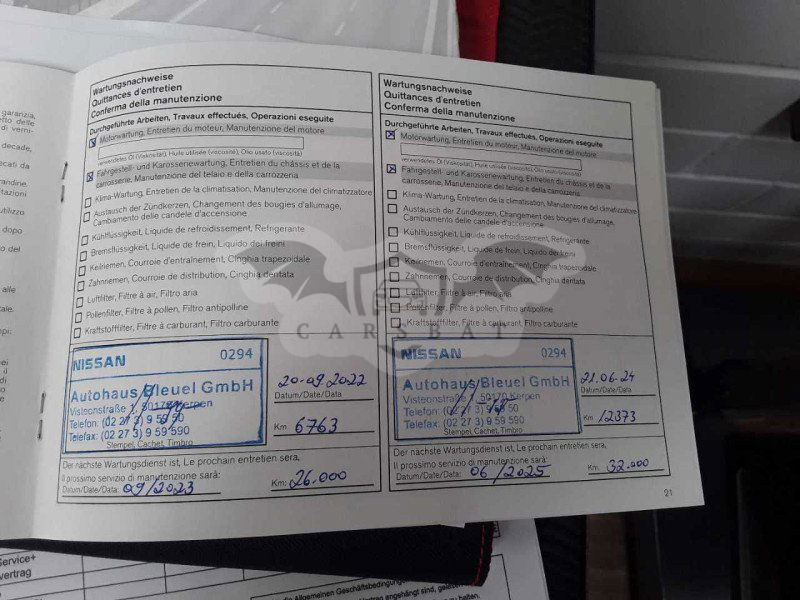 garanzia,
decade,
utilizzo
dopo
del
alle
Wartungsnachweise
Quittances d'entretien
Conferma della manutenzione
Durchgeführte Arbeiten, Travaux effectués, Operazioni eseguite
Motorwartung, Entretien du moteur, Manutenzione del motore
verwendetes Öl (Viskosität), Huile utilisée (viscosité), Olio usato (viscosità)
Fahrgestell- und Karossenewartung, Entretien du châssis et de la
carrosserie, Manutenzione del telaio e della carrozzeria
Klima-Wartung, Entretien de la climatisation, Manutenzione del climatizzatore
Austausch der Zündkerzen, Changement des bougies d'allumage,
Cambiamento delle candele d'accensione
Kühlflüssigkeit, Liquide de refroidissement, Refrigerante
Bremsflüssigkeit, Liquide de frein, Liquido dei freini
Keilriemen, Courroie d'entraînement, Cinghia trapezoidale
Zahnriemen, Courroie de distribution, Cinghia dentata
Luftfilter, Filtre à air, Filtro aria
Pollenfilter, Filtre à pollen, Filtro antipolline
Kraftstofffilter, Filtre à carburant, Filtro carburante
NISSAN 0294
Autohaus Bleuel GmbH
Visteonstraße 50170 Kerpen
Telefon: (02 27 3) 9 59 50
Telefax: (02 27 3) 9 59 590
Stempel, Cachet, Timbro
20-09-2022
Datum/Date/Data
Km 6763
Der nächste Wartungsdienst ist, Le prochain entretien sera,
Il prossimo servizio di manutenzione sarà:
Datum/Date/Data: 09/2023 Km: 26.000
Wartungsnachweise
Quittances d'entretien
Conferma della manutenzione
Durchgeführte Arbeiten, Travaux effectués, Operazioni eseguite
Motorwartung, Entretien du moteur, Manutenzione del motore
verwendetes Öl (Viskosität), Huile utilisée (viscosité), Olio usato (viscosità)
Fahrgestell- und Karossenewartung, Entretien du châssis et de la
carrosserie, Manutenzione del telaio e della carrozzeria
Klima-Wartung, Entretien de la climatisation, Manutenzione del climatizzatore
Austausch der Zündkerzen, Changement des bougies d'allumage,
Cambiamento delle candele d'accensione
Kühlflüssigkeit, Liquide de refroidissement, Refrigerante
Bremsflüssigkeit, Liquide de frein, Liquido dei freini
Keilriemen, Courroie d'entraînement, Cinghia trapezoidale
Zahnriemen, Courroie de distribution, Cinghia dentata
Luftfilter, Filtre à air, Filtro aria
Pollenfilter, Filtre à pollen, Filtro antipolline
Kraftstofffilter, Filtre à carburant, Filtro carburante
NISSAN 0294
Autohaus Bleuel GmbH
Visteonstraße 50170 Kerpen
Telefon: (02 27 3) 9 59 50
Telefax: (02 27 3) 9 59 590
Stempel, Cachet, Timbro
21.06-24
Datum/Date/Data
Km 12373
Der nächste Wartungsdienst ist, Le prochain entretien sera,
Il prossimo servizio di manutenzione sarà:
Datum/Date/Data: 06/2025 Km: 32.000
21
CARSBAT
Service+
vertrag